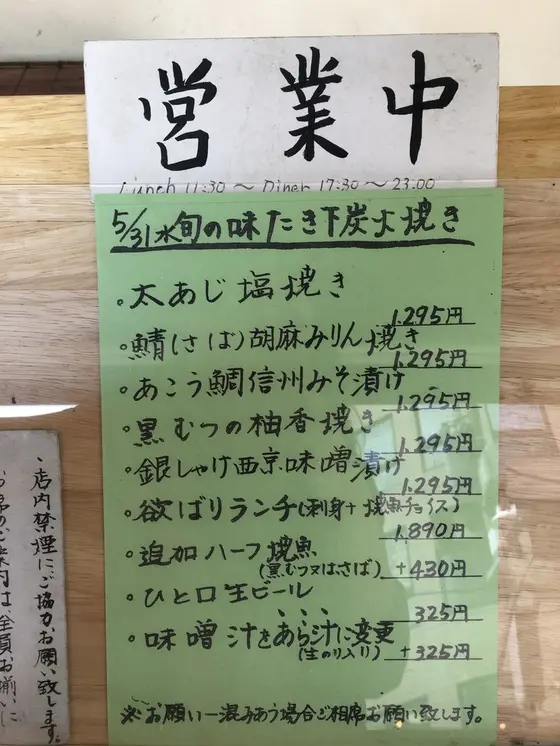 営業中
Lunch 11:30 ～ Diner 17:30 ～ 23:00
5/31水 旬の味 たき下炭火焼き
。太あじ塩焼き
1,295円
。鯖(さば)胡麻みりん焼き
1,295円
。あこう鯛信州みそ漬け
1,295円
。黒むつの柚香焼き
1,295円
。銀しゃけ西京味噌漬け
1,295円
。欲ばりランチ(刺身+焼魚チョイス)
1,890円
。追加ハーフ焼魚
(黒むつ又はさば) +430円
。ひと口生ビール
325円
。味噌汁をあら汁に変更
(生のり入り) +325円
※お願い一混みあう場合ご相席お願い致します。
・店内禁煙にご協力お願い致します。